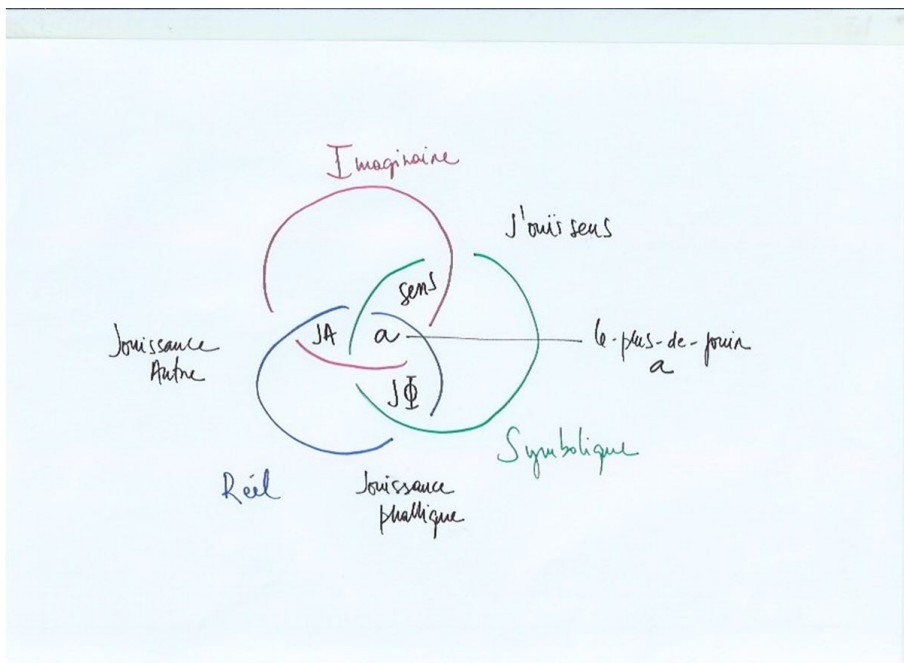 Imaginaire
J'ouïs sens
sens
Jouissance
Autre
JA
a
le-plus-de-jouir
a
JΦ
Symbolique
Réel
Jouissance
phallique